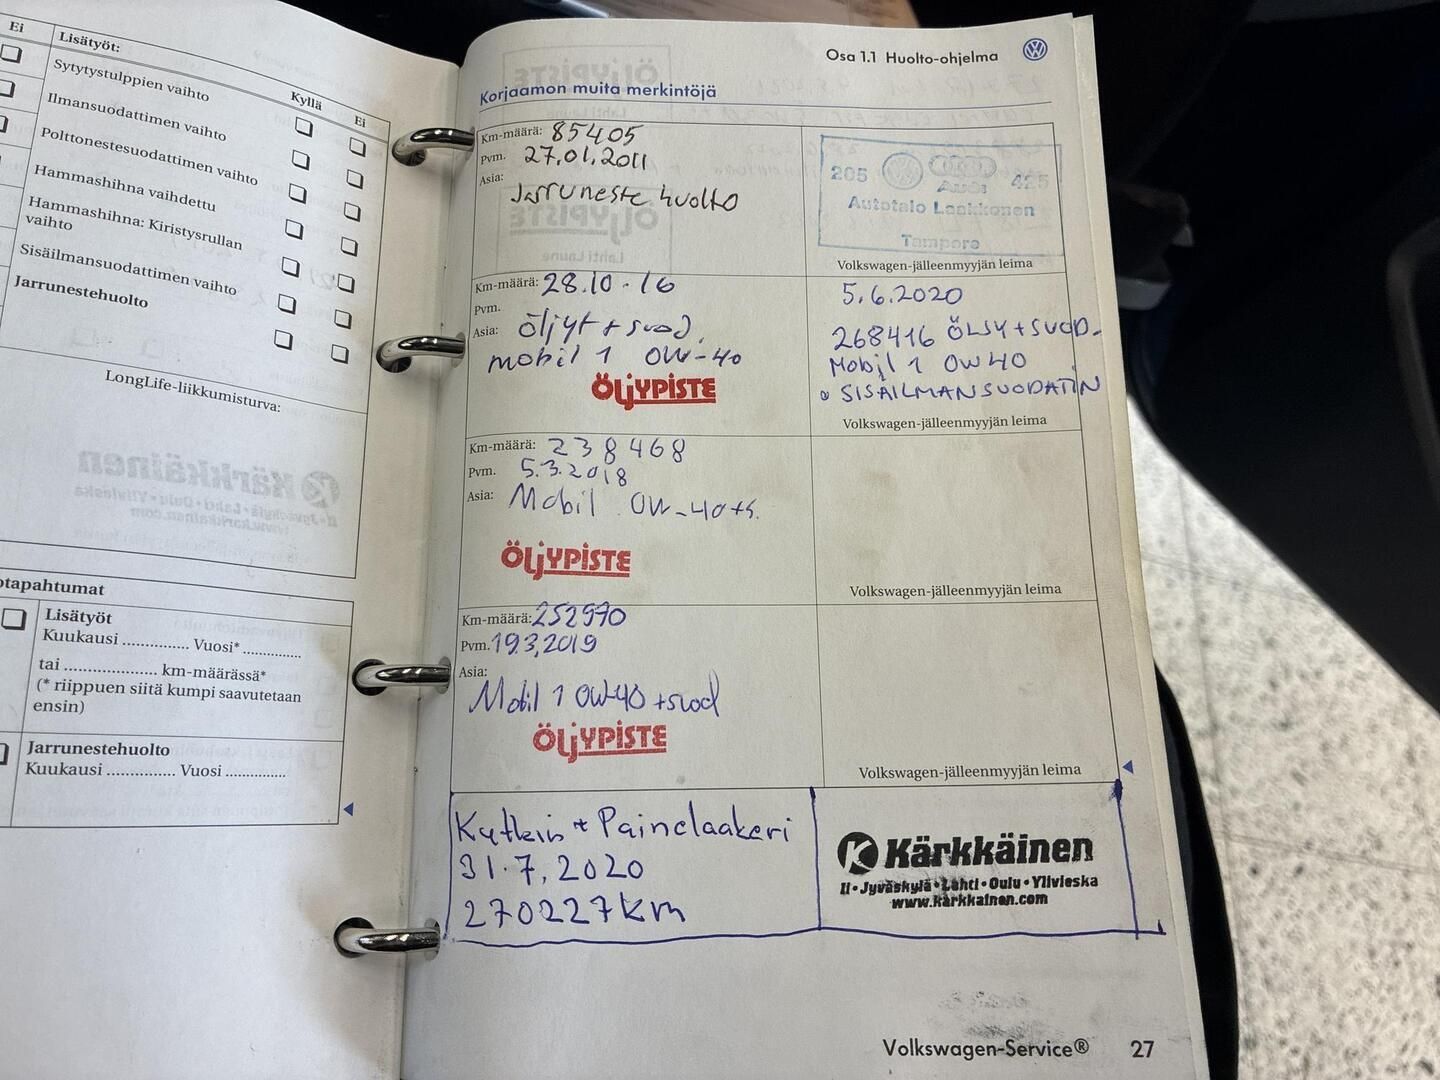 Ei
Lisätyöt:
Kyllä
Ei
Sytytystulppien vaihto
Ilmansuodattimen vaihto
Polttonestesuodattimen vaihto
Hammashihna vaihdettu
Hammashihna: Kiristysrullan
vaihto
Sisäilmansuodattimen vaihto
Jarrunestehuolto
LongLife-liikkumisturva:
otapahtumat
Lisätyöt
Kuukausi ................ Vuosi* ..............
tai ...................... km-määrässä*
(* riippuen siitä kumpi saavutetaan
ensin)
Jarrunestehuolto
Kuukausi ................ Vuosi ..............
Osa 1.1 Huolto-ohjelma
Korjaamon muita merkintöjä
Km-määrä: 85405
Pvm. 27.01.2011
Asia:
Jarruneste huolto
205 Audi 425
Autotalo Laakkonen
Tampere
Volkswagen-jälleenmyyjän leima
Km-määrä: 28.10.16
Pvm.
Asia: öljyt + suod.
mobil 1 0W-40
ÖLJYPISTE
5.6.2020
268416 ÖLJY + SUOD.
Mobil 1 0W40
SISÄILMANSUODATIN
Volkswagen-jälleenmyyjän leima
Km-määrä: 238468
Pvm. 5.3.2018
Asia: Mobil 0W-40+s.
ÖLJYPISTE
Volkswagen-jälleenmyyjän leima
Km-määrä: 252970
Pvm. 19.3.2019
Asia:
Mobil 1 0W-40 +suod
ÖLJYPISTE
Volkswagen-jälleenmyyjän leima
Kytkin + Painelaakeri
31.7.2020
270227 km
Kärkkäinen
Ii • Jyväskylä • Lahti • Oulu • Ylivieska
www.karkkainen.com
Volkswagen-Service® 27